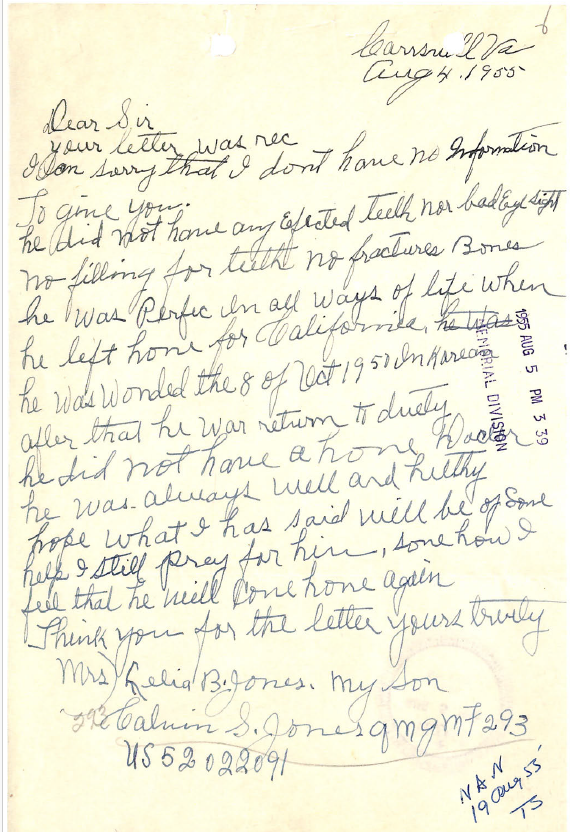 6
Carrsville Va
Aug 4. 1955
Dear Sir
your letter was rec
I am sorry that I dont have no Information
To give you.
he did not have any Efected teeth nor bad Eye sight
no filling for teeth no fractures Bones
he was Perfec In all ways of life when
he left home for California, he was
he was wonded the 8 of Oct 1950 In Korean
after that he war return To duety
he did not have a home Doctor
he was always well and helthy
hope what I has said will be of Some
help I still pray for him, some how I
feel that he will Come home again
Think you for the letter yours truely
Mrs Lelia B. Jones. my Son
293 Calvin S. Jones QMGMF 293
US 52022091
1955 AUG 5 PM 3 39
MEMORIAL DIVISION
NAN
19 Aug 55
TS